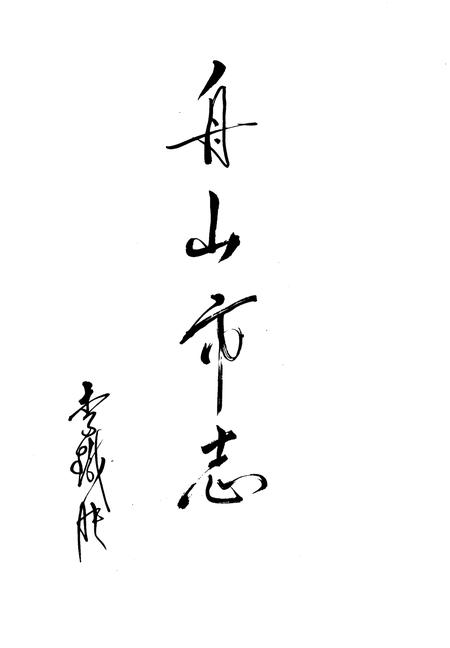 舟山市志
李鐵映